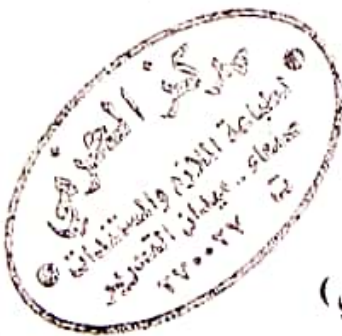 مركز المقرمي
لطباعة الملازم والمستندات
صنعاء .. ميدان التحرير
ت ٢٧٠٠٢٧
)